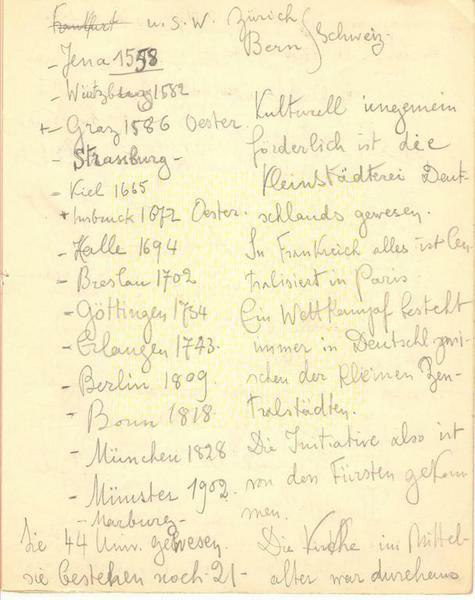 Frankfurt u.s.w. Zürich
Bern Schweiz.
- Jena 1558
- Würtzburg 1582
+- Graz 1586 Oester.
- Strassburg -
- Kiel 1665
+ Insbruck 1672 Oester.
- Halle 1694
- Breslau 1702
- Göttingen 1734
- Erlangen 1743.
- Berlin 1809.
- Bonn 1818.
- München 1828
- Münster 1902.
- Marburg -
Sie 44 Univ. gewesen.
sie bestehen noch 21-
Kulturell ungemein
förderlich ist die
Kleinstädterei Deut-
schlands gewesen.
In Frankreich alles ist Cen-
tralisiert in Paris.
Ein Wettkampf besteht
immer in Deutschl. zwi-
schen der kleinen Zen-
tralstädten.
Die Initiative also ist
von den Fürsten gekom
men.
Die Kirche im Mittel-
alter war durchaus